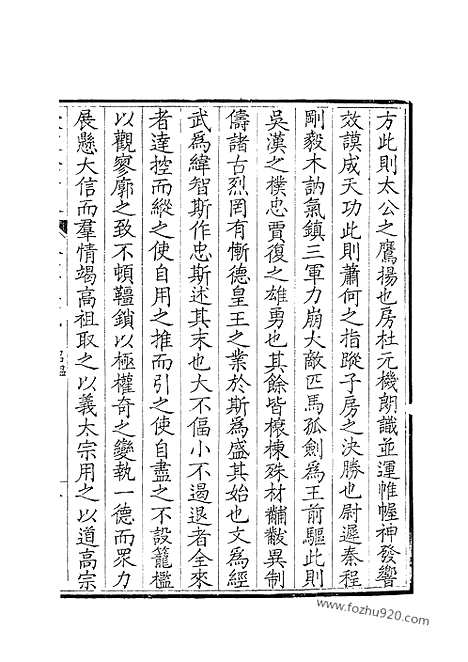 方此則太公之鷹揚也房杜元機朗識並運帷幄神發響
效謨成天功此則蕭何之指蹤子房之決勝也尉遲秦程
剛毅木訥氣鎮三軍力崩大敵匹馬孤劍為王前驅此則
吳漢之樸忠賈復之雄勇也其餘皆榱棟殊材黼黻異制
儔諸古烈罔有慚德皇王之業於斯為盛其始也文為經
武為緯智斯作忠斯述其末也大不偪小不遏退者全來
者達控而縱之使自用之推而引之使自盡之不設籠檻
以觀寥廓之致不頓韁鎖以極權奇之變執一德而眾力
展懸大信而羣情竭高祖取之以義太宗用之以道高宗
www.fozhu920.com